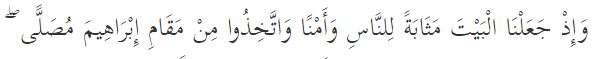 وَإِذْ جَعَلْنَا الْبَيْتَ مَثَابَةً لِلنَّاسِ وَأَمْنًا وَاتَّخِذُوا مِنْ مَقَامِ إِبْرَاهِيمَ مُصَلًّى ۖ